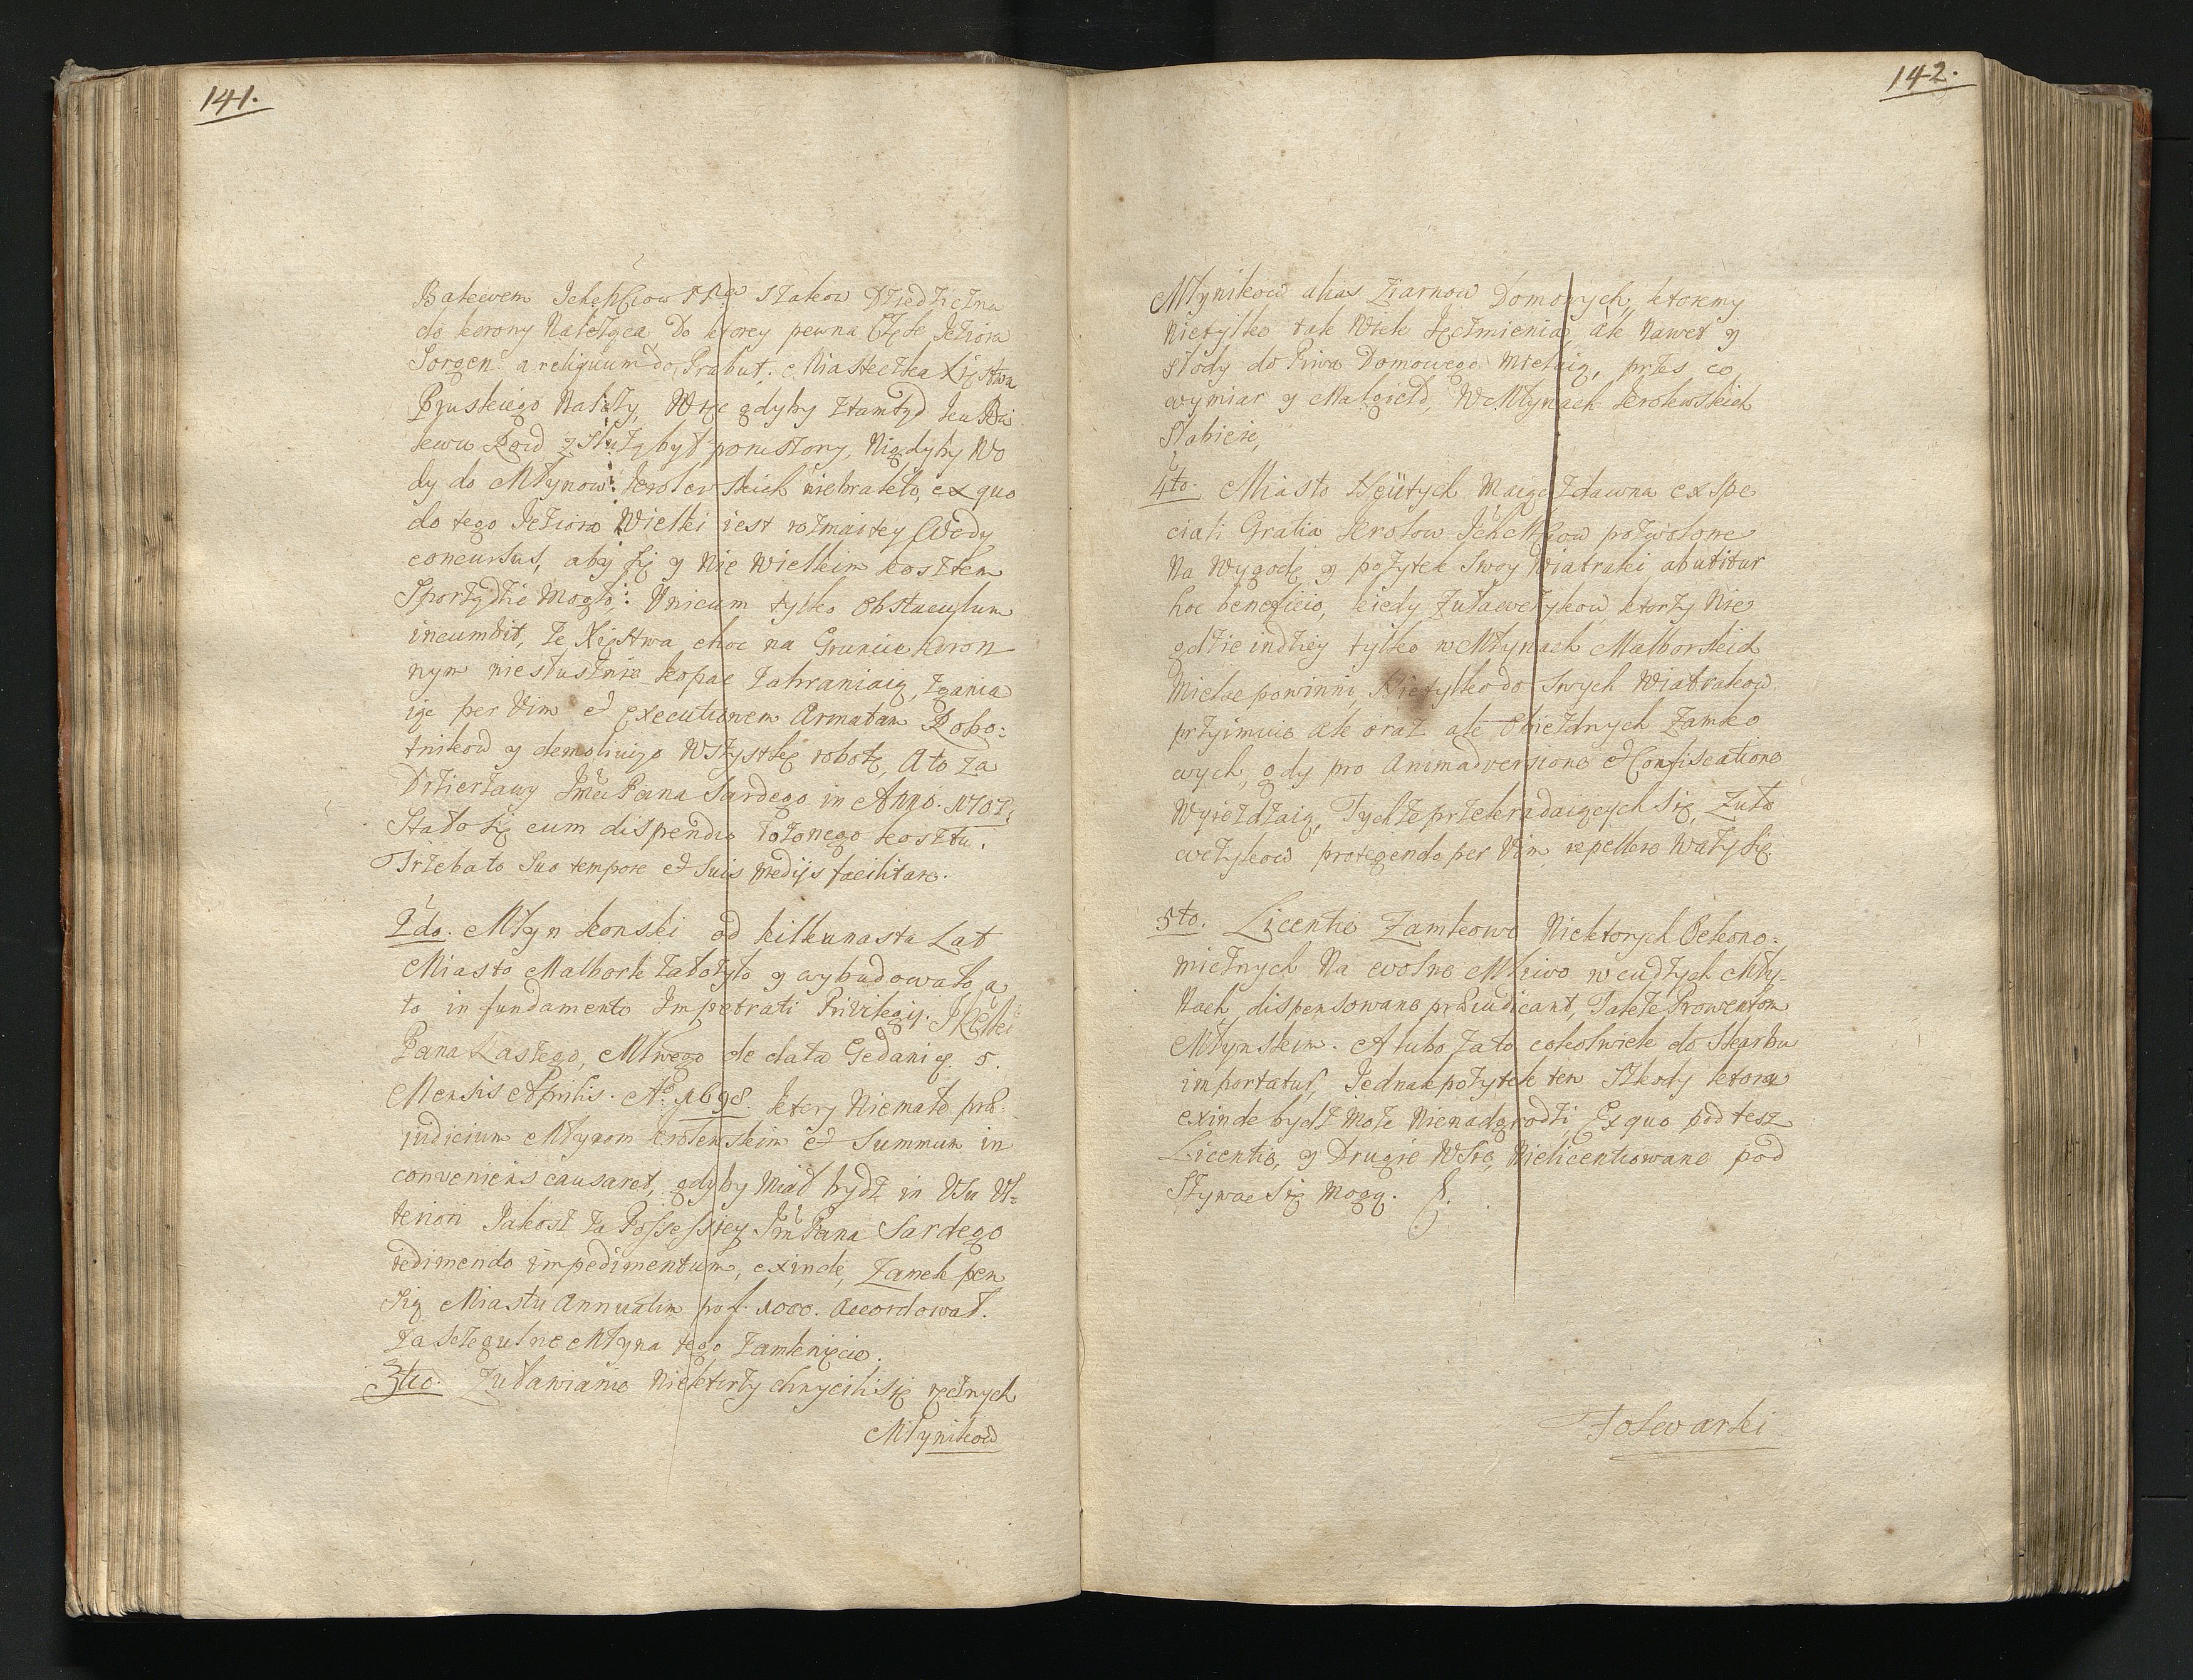 141.
Bakiewem Ichmciow PPw Szakow Dziedziczna
do korony Należąca, Do ktorey pewna Część Jeziora
Sorgen. a reliquum do Prabut. Miasteczka Xięstwa
Pruskiego Należy, Więc gdyby ztamtąd ku
był ponszony, Nigdyby Wo
dy do Młynow Krolewskich niebrakło, ex quo
do tego Jeziora Wielki iest rozmaitey Wody
concursus, aby się y Nie Wielkim kosztem
Sporządzić Mogło: Vnicum tylko Obstaculum
incumbit, że Xięstwa choc na Gruncie koron
nym niesłusznie kopac Zabraniaią, Zgania
iąc per Vim et executionem Armatam Robo:
tnikow y demoliuiąc Wszystkę robotę, A to za
Dzierżawy Pana Sardego in Anno. 1707,
Stało się cum dispendio łożonego kosztu.
Trzeba to Suo tempore et Suis medijs facilitare.
2do. Młyn konski od kilkunastu Lat
Miasto Malbork założyło y wybudowało, a
to in fundamento Impetrati Privilegij.
Pana Naszego, Młwego de data Gedani 5.
Mensis Aprilis. Ao. 1698. ktory Niemało præ:
judicium Młynom krolewskim et Summum in
conveniens causaret, gdyby Miał bydź in Usu Vl:
teriori Jakosz za Possessiey Pana Sardego
redimendo impedimentum, exinde, Zamek pen
sią Miastu Annuatim po f. 1000. Accordował.
za Młyna tego Zamknięcie.
3tio. Żuławianie Niektorzy chwycili się ręcznych
Młynikow
142.
Młynikow alias Żiarnow Domowych, ktoremy
Nietylko tak Wiele Jęczmienia, ale Nawet y
Słody do Piwa Domowego Mielaią, przes co
wymiar y Malgield, W Młynach krolewskich
Słabieie,
4to. Miasto Maiąc Zdawna ex Spe
ciali Gratia krolow pozwolone
Na Wygodę y pożytek Swoy Wiatraki abutitur
hoc beneficio, kiedy Żuławczykow, ktorzy Nie
gdzie indziey tylko w Młynach Malborskich
Mielac powinni, Nietylko do Swych Wiatrakow
przyimuie ale oraz ale Obieżdnych Zamko
wych, gdy pro Animadversione et Confiscatione
Wyieżdżaią, Tychże przekradaiących się, Żuła
wczykow protegendo per Vim repellere Waży się.
5to. Licentie Zamkowe Niektorych Oekono:
micznych Na wolne Mliwo w cudzych Mły-
nach dispensowane præiudicant, Takze Prowentom
Młynskim. A lubo za to cokolwiek do Skarbu
importatur, Jednak pożytek ten Szkody ktora
exinde bydź Może Nienadgrodzi, Ex quo pod tesz
Licentie, y Drugie Wsie, Nielicentiowane pod
Szywac Się Mogą.
Folwarki